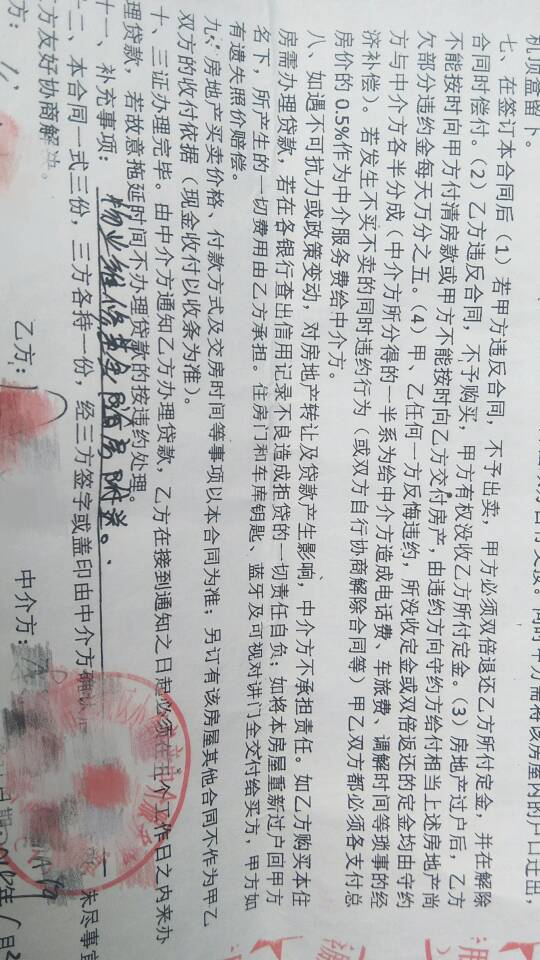 机顶盒留下。
七、在签订本合同后（1）若甲方违反合同，不予出卖，甲方必须双倍退还乙方所付定金，并在解除
合同时偿付。（2）乙方违反合同，不予购买，甲方有权没收乙方所付定金。（3）房地产过户后，乙方
不能按时向甲方付清房款或甲方不能按时向乙方交付房产，由违约方向守约方给付相当上述房地产尚
欠部分违约金每天万分之五。（4）甲、乙任何一方反悔违约，所没收定金或双倍返还的定金均由守约
方与中介方各半分成（中介方所分得的一半系为给中介方造成电话费、车旅费、调解时间等琐事的经
济补偿）。若发生不买不卖的同时违约行为（或双方自行协商解除合同等）甲乙双方都必须各支付总
房价的0.5%作为中介服务费给中介方。
八、如遇不可抗力或政策变动，对房地产转让及贷款产生影响，中介方不承担责任。如乙方购买本住
房需办理贷款，若在各银行查出信用记录不良造成拒贷的一切责任自负；如将本房屋重新过户回甲方
名下，所产生的一切费用由乙方承担。住房门和车库钥匙、蓝牙及可视对讲门全交付给买方，甲方如
有遗失照价赔偿。
九、房地产买卖价格、付款方式及交房时间等事项以本合同为准；另订有该房屋其他合同不作为甲乙
双方的收付依据（现金收付以收条为准）。
十、三证办理完毕。由中介方通知乙方办理贷款，乙方在接到通知之日起必须在 个工作日之内来办
理贷款，若故意拖延时间不办理贷款的按违约处理
十一、补充事项：物业维修基金随房附送。
十二、本合同一式三份，三方各持一份，经三方签字或盖印由中介方 未尽事宜
方友好协商解决。
方： 乙方： 中介方：
日期 年 月